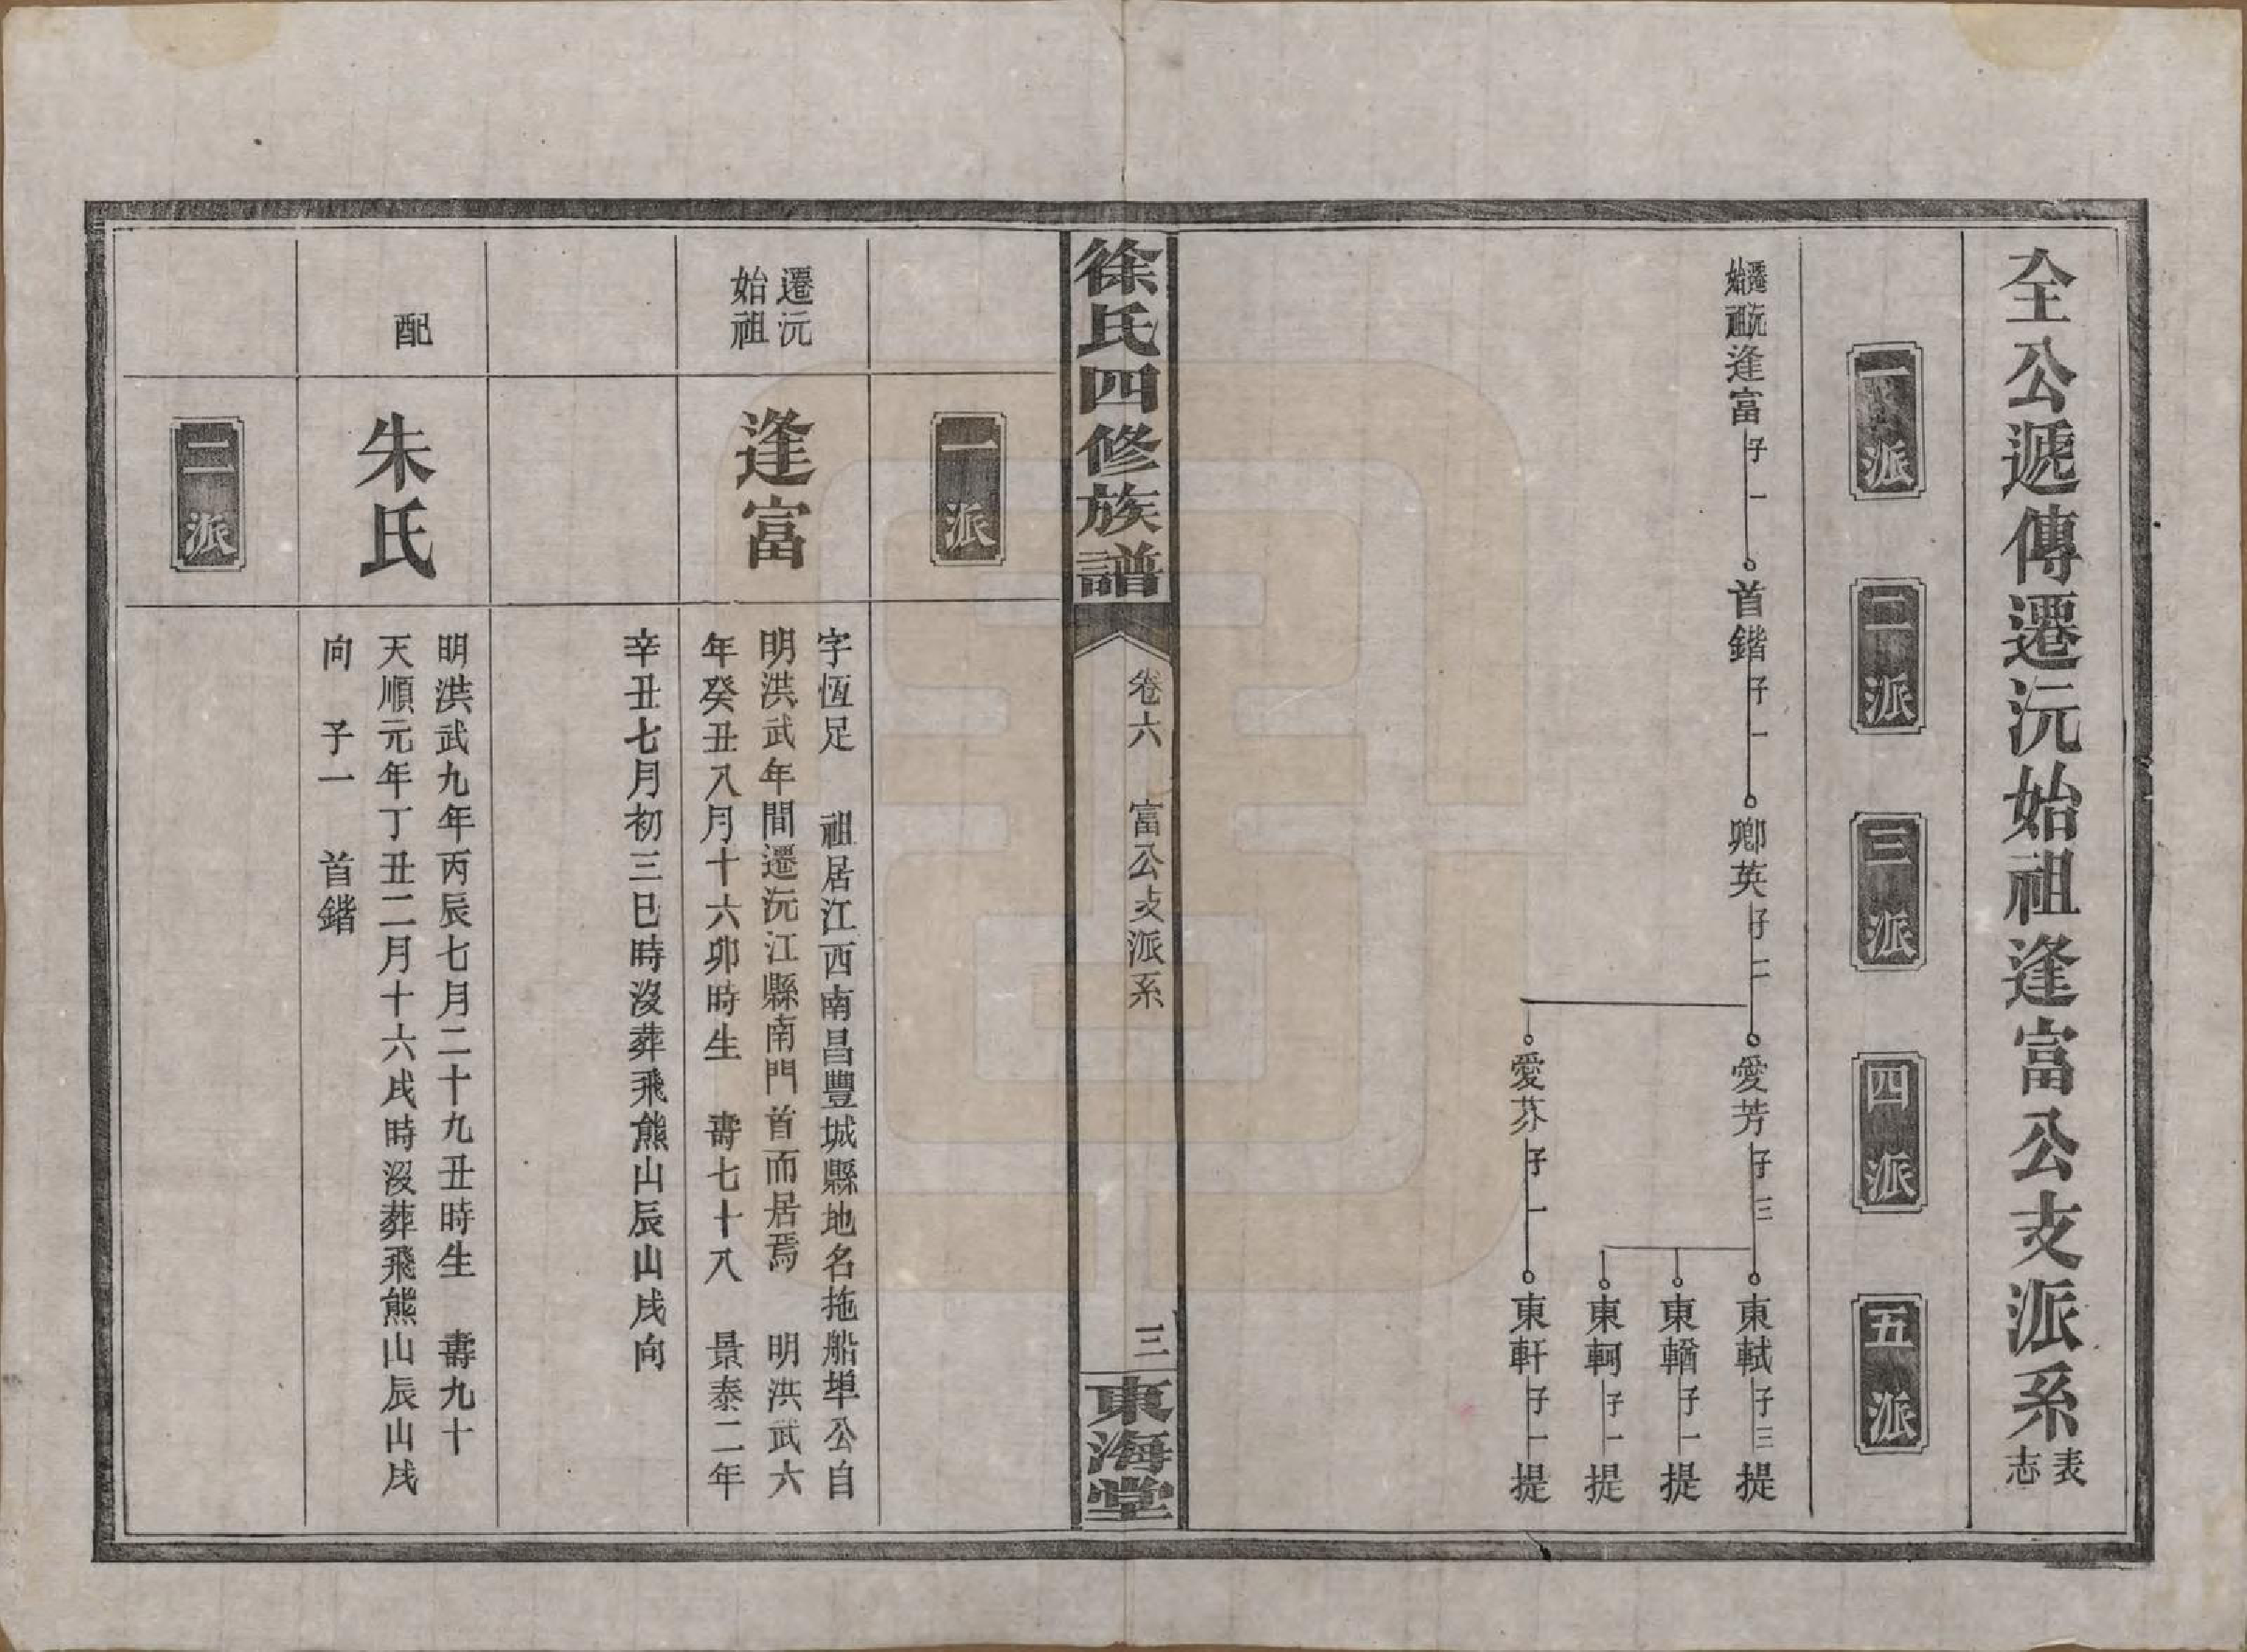 全公遞傳遷沅始祖逢富公支派系
表
志
一派
二派
三派
四派
五派
遷沅
始祖
逢富 子一
首鍇 子一
卿英 子二
愛芳 子三
東軾 子三 提
東輶 子一 提
東軻 子一 提
愛芥 子一
東軒 子一 提
徐氏四修族譜
卷六 富公支派系
三
東海堂
一派
遷沅
始祖
逢富
字恆足 祖居江西南昌豐城縣地名拖船埠公自
明洪武年間遷沅江縣南門首而居焉 明洪武六
年癸丑八月十六卯時生 壽七十八 景泰二年
辛丑七月初三巳時沒葬飛熊山辰山戌向
配
朱氏
明洪武九年丙辰七月二十九丑時生 壽九十
天順元年丁丑二月十六戌時沒葬飛熊山辰山戌
向 子一 首鍇
二派